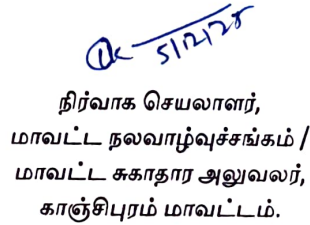 5/12/25
நிர்வாக செயலாளர்,
மாவட்ட நலவாழ்வுச்சங்கம் /
மாவட்ட சுகாதார அலுவலர்,
காஞ்சிபுரம் மாவட்டம்.